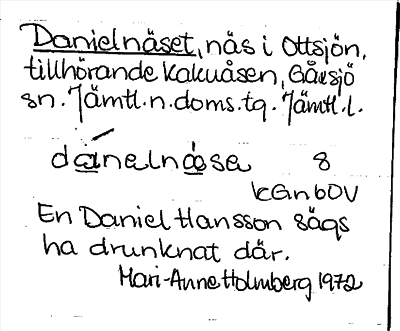 Danielnäset, näs i Ottsjön,
tillhörande Kakuåsen, Gåxsjö
sn. Jämtl. n. doms. tg. Jämtl. l.
danelnose 8
En Daniel Hansson sägs
ha drunknat där.
Mari-Anne Holmberg 1972